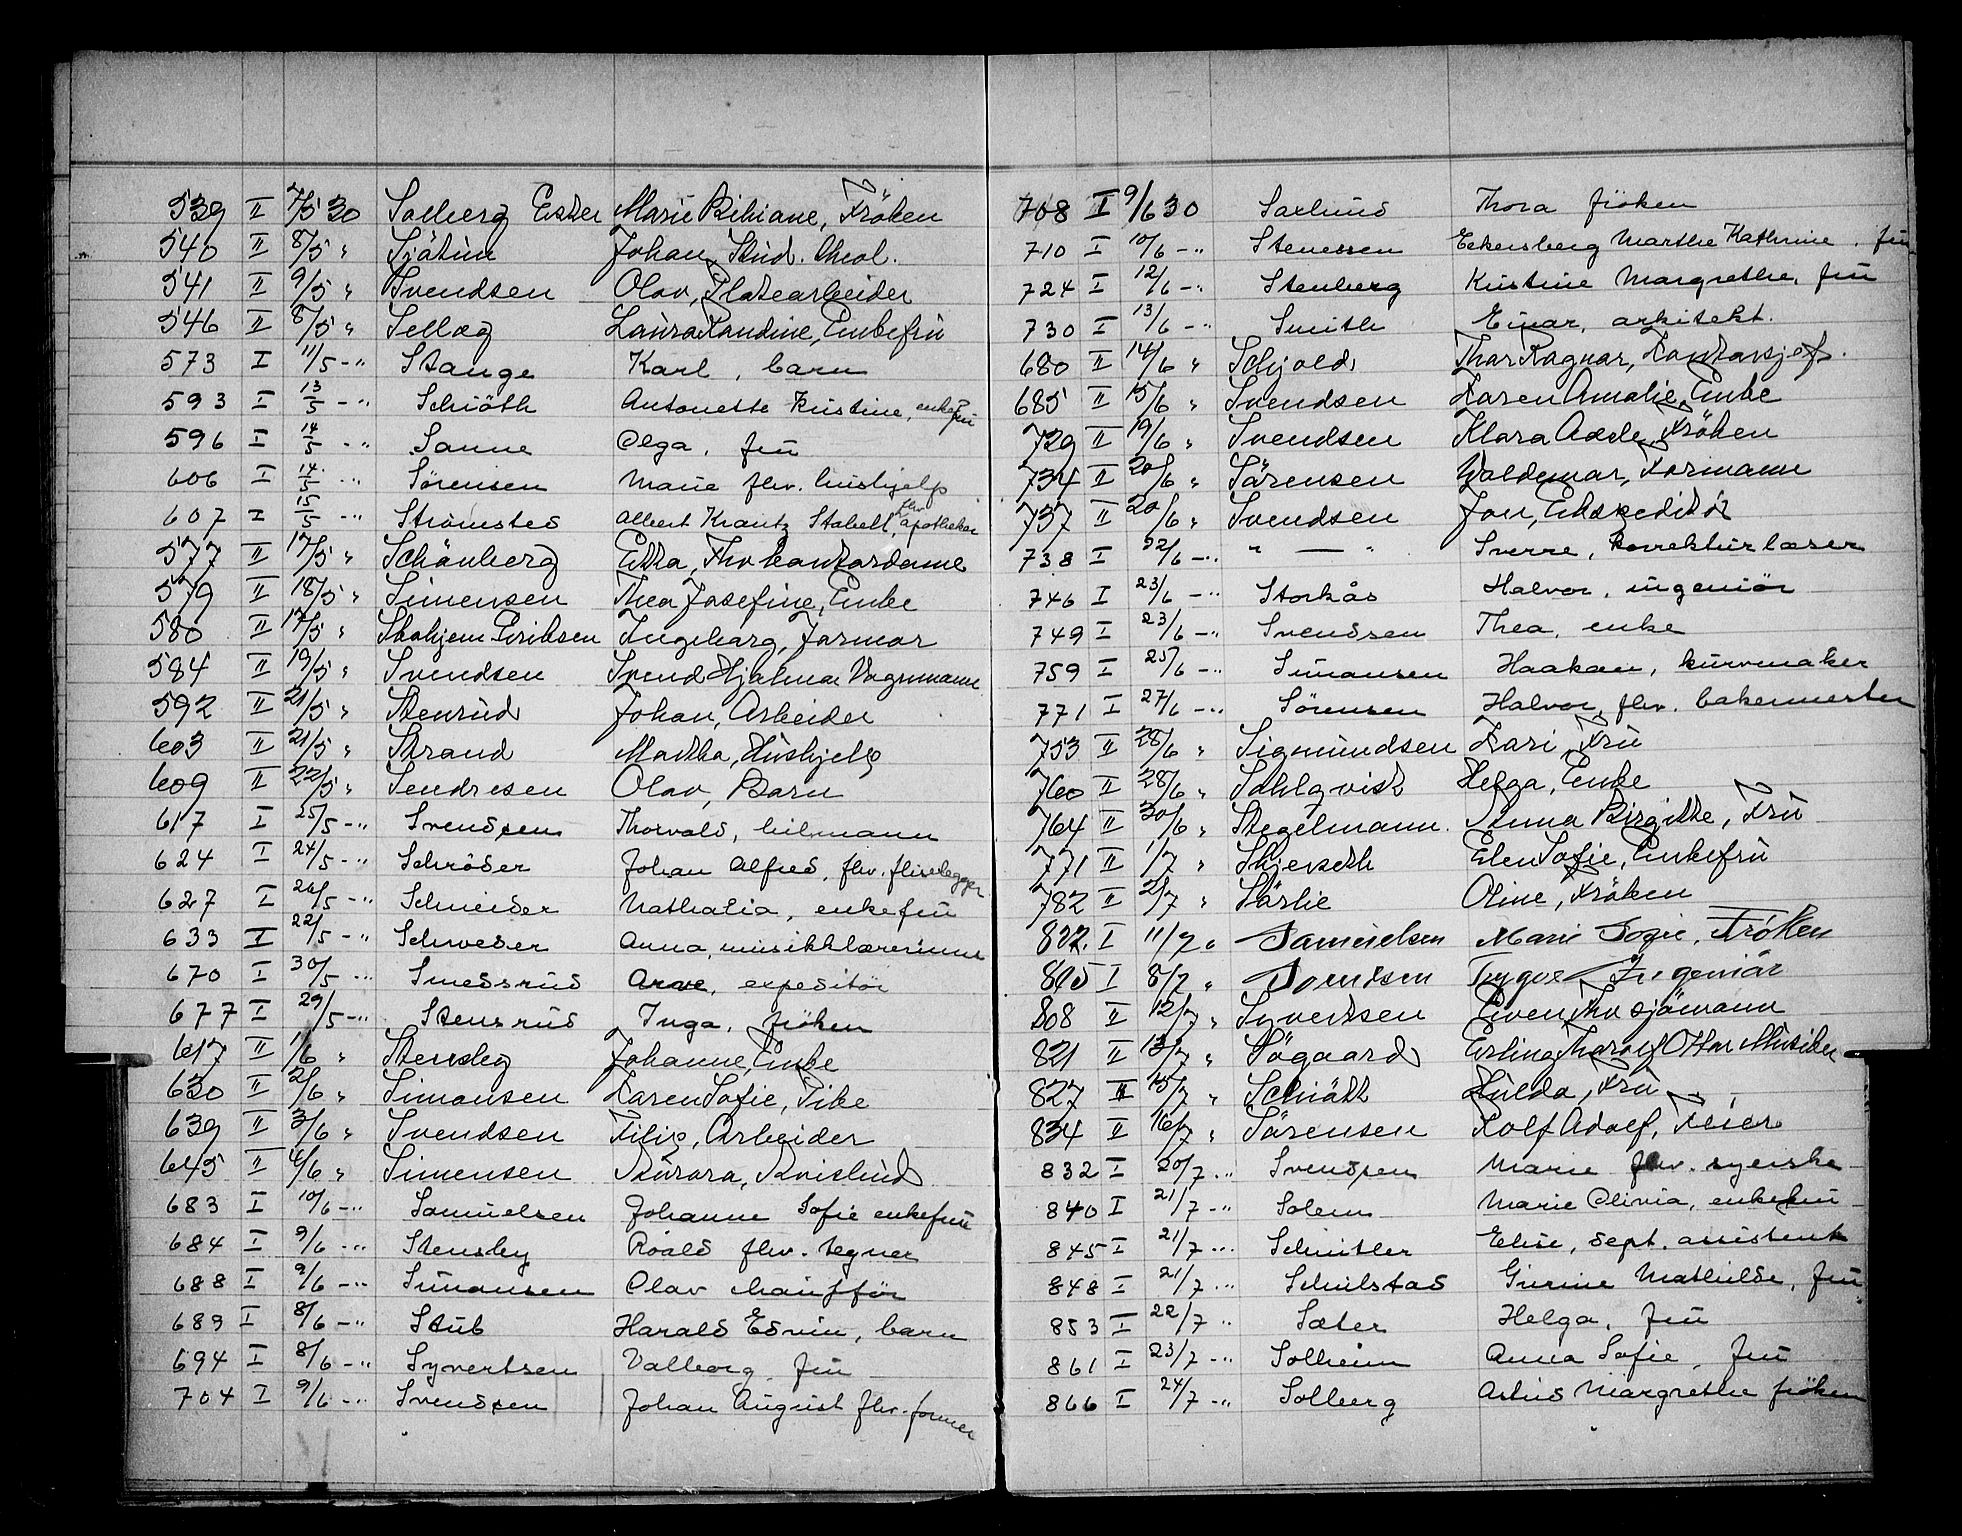 539 II 7/5 30 Solberg Ester Marie Bibiane, Fröken
540 II 8/5 " Sjötun Johan, Stud. theol.
541 II 9/5 " Svendsen Olav, Platearbeider
546 II 8/5 " Selläg Laura Randine, Enkefru
573 I 11/5 -" Stange Karl, barn
593 I 13/5 -" Schiöth Antonette Kristine, enkefru
596 I 14/5 -" Sanne Olga, fru
606 I 14/5 -" Sørensen Marie fhv. hushjelp
607 I 15/5 -" Strømsted Albert Krantz Stabell, fhv. apotheker
577 II 17/5 " Schönberg Etta, Fhv kontordame
579 II 18/5 " Simensen Thea Josefine, Enke
580 II 17/5 " Eriksen Ingeborg, Jormor
584 II 19/5 " Svendsen Svend Hjalmar Vognmann
592 II 21/5 " Stenrud Johan, Arbeider
603 II 21/5 " Strand Martha, Hushjelp
609 II 22/5 " Sendresen Olav, Barn
617 I 25/5 -" Svendsen Thorvald, bilmann
624 I 24/5 -" Schrøder Johan Alfred, fhv. fliselegger
627 I 26/5 -" Schneider Nathalia, enkefru
633 I 22/5 -" Schweder Anna, musikklærerinne
670 I 30/5 -" Smedsrud Arve, expeditør
677 I 29/5 -" Stensrud Inga, frøken
617 II 1/6 " Stensby Johanne, Enke
630 II 2/6 " Simonsen Karen Sofie, Pike
639 II 3/6 " Svendsen Filip, Arbeider
645 II 4/6 " Simensen Aurora, Kvislund
683 I 10/6 -" Samuelsen Johanne Sofie enkefru
684 I 9/6 -" Stensby Roald fhv. tegner
688 I 9/6 -" Simonsen Olav chauffør
689 I 8/6 -" Stub Harald Edvin, barn
694 I 8/6 -" Syvertsen Valborg, fru
704 I 9/6 -" Svendsen Johan August fhv. former
708 I 9/6 30 Saxlund Thora frøken
710 I 10/6 -" Stenersen Eckersberg Marthe Kathrine, fru
724 I 12/6 -" Stenberg Kristine Margrethe, fru
730 I 13/6 -" Smith Einar, arkitekt.
680 II 14/6 " Schjold Thor Ragnar, Kontorsjef.
685 II 15/6 " Svendsen Karen Amalie, Enke
729 II 19/6 " Svendsen Klara Adele, Fröken
734 II 20/6 " Sörensen Waldemar, Formann
737 II 20/6 " Svendsen Jon, Ekspeditör
738 I 22/6 -" " — " Sverre, korrekturlæser
746 I 23/6 -" Storkås Halvor, ingeniør
749 I 23/6 -" Svendsen Thea, enke
759 I 25/6 -" Simonsen Haakon, kurvmaker
771 I 27/6 -" Sørensen Halvor, fhv. bakermester
753 II 28/6 " Sigmundsen Kari, Fru
760 II 28/6 " Sahlqvist Helga, Enke
764 II 30/6 " Stegelmann. Anna Birgitte, Fru
771 II 1/7 " Skjerseth Elen Sofie, Enkefru
782 II 2/7 " Sörlie Oline, Fröken
822. I 11/7 " Samuelsen Marie Sofie, Frøken
805 I 8/7 " Trygve Ingeniör
808 II 12/7 " Syvertsen Even Fhv sjömann
821 II 13/7 " Sögaard Erling Thorolf Ottar Musiker
827 II 15/7 " Schiött Hulda, Fru
834 II 16/7 " Sörensen Rolf Adolf, Feier
832 I 20/7 -" Svendsen Marie fhv. syerske
840 I 21/7 -" Solem Marie Olivia, enkefru
845 I 21/7 -" Schnitler Elise, dept. assistent
848 I 21/7 -" Schulstad Gurine Mathilde, fru
853 I 22/7 " Sæter Helga, fru
861 I 23/7 -" Solheim Anna Sofie, fru
866 I 24/7 -" Solberg Astrid Margrethe frøken